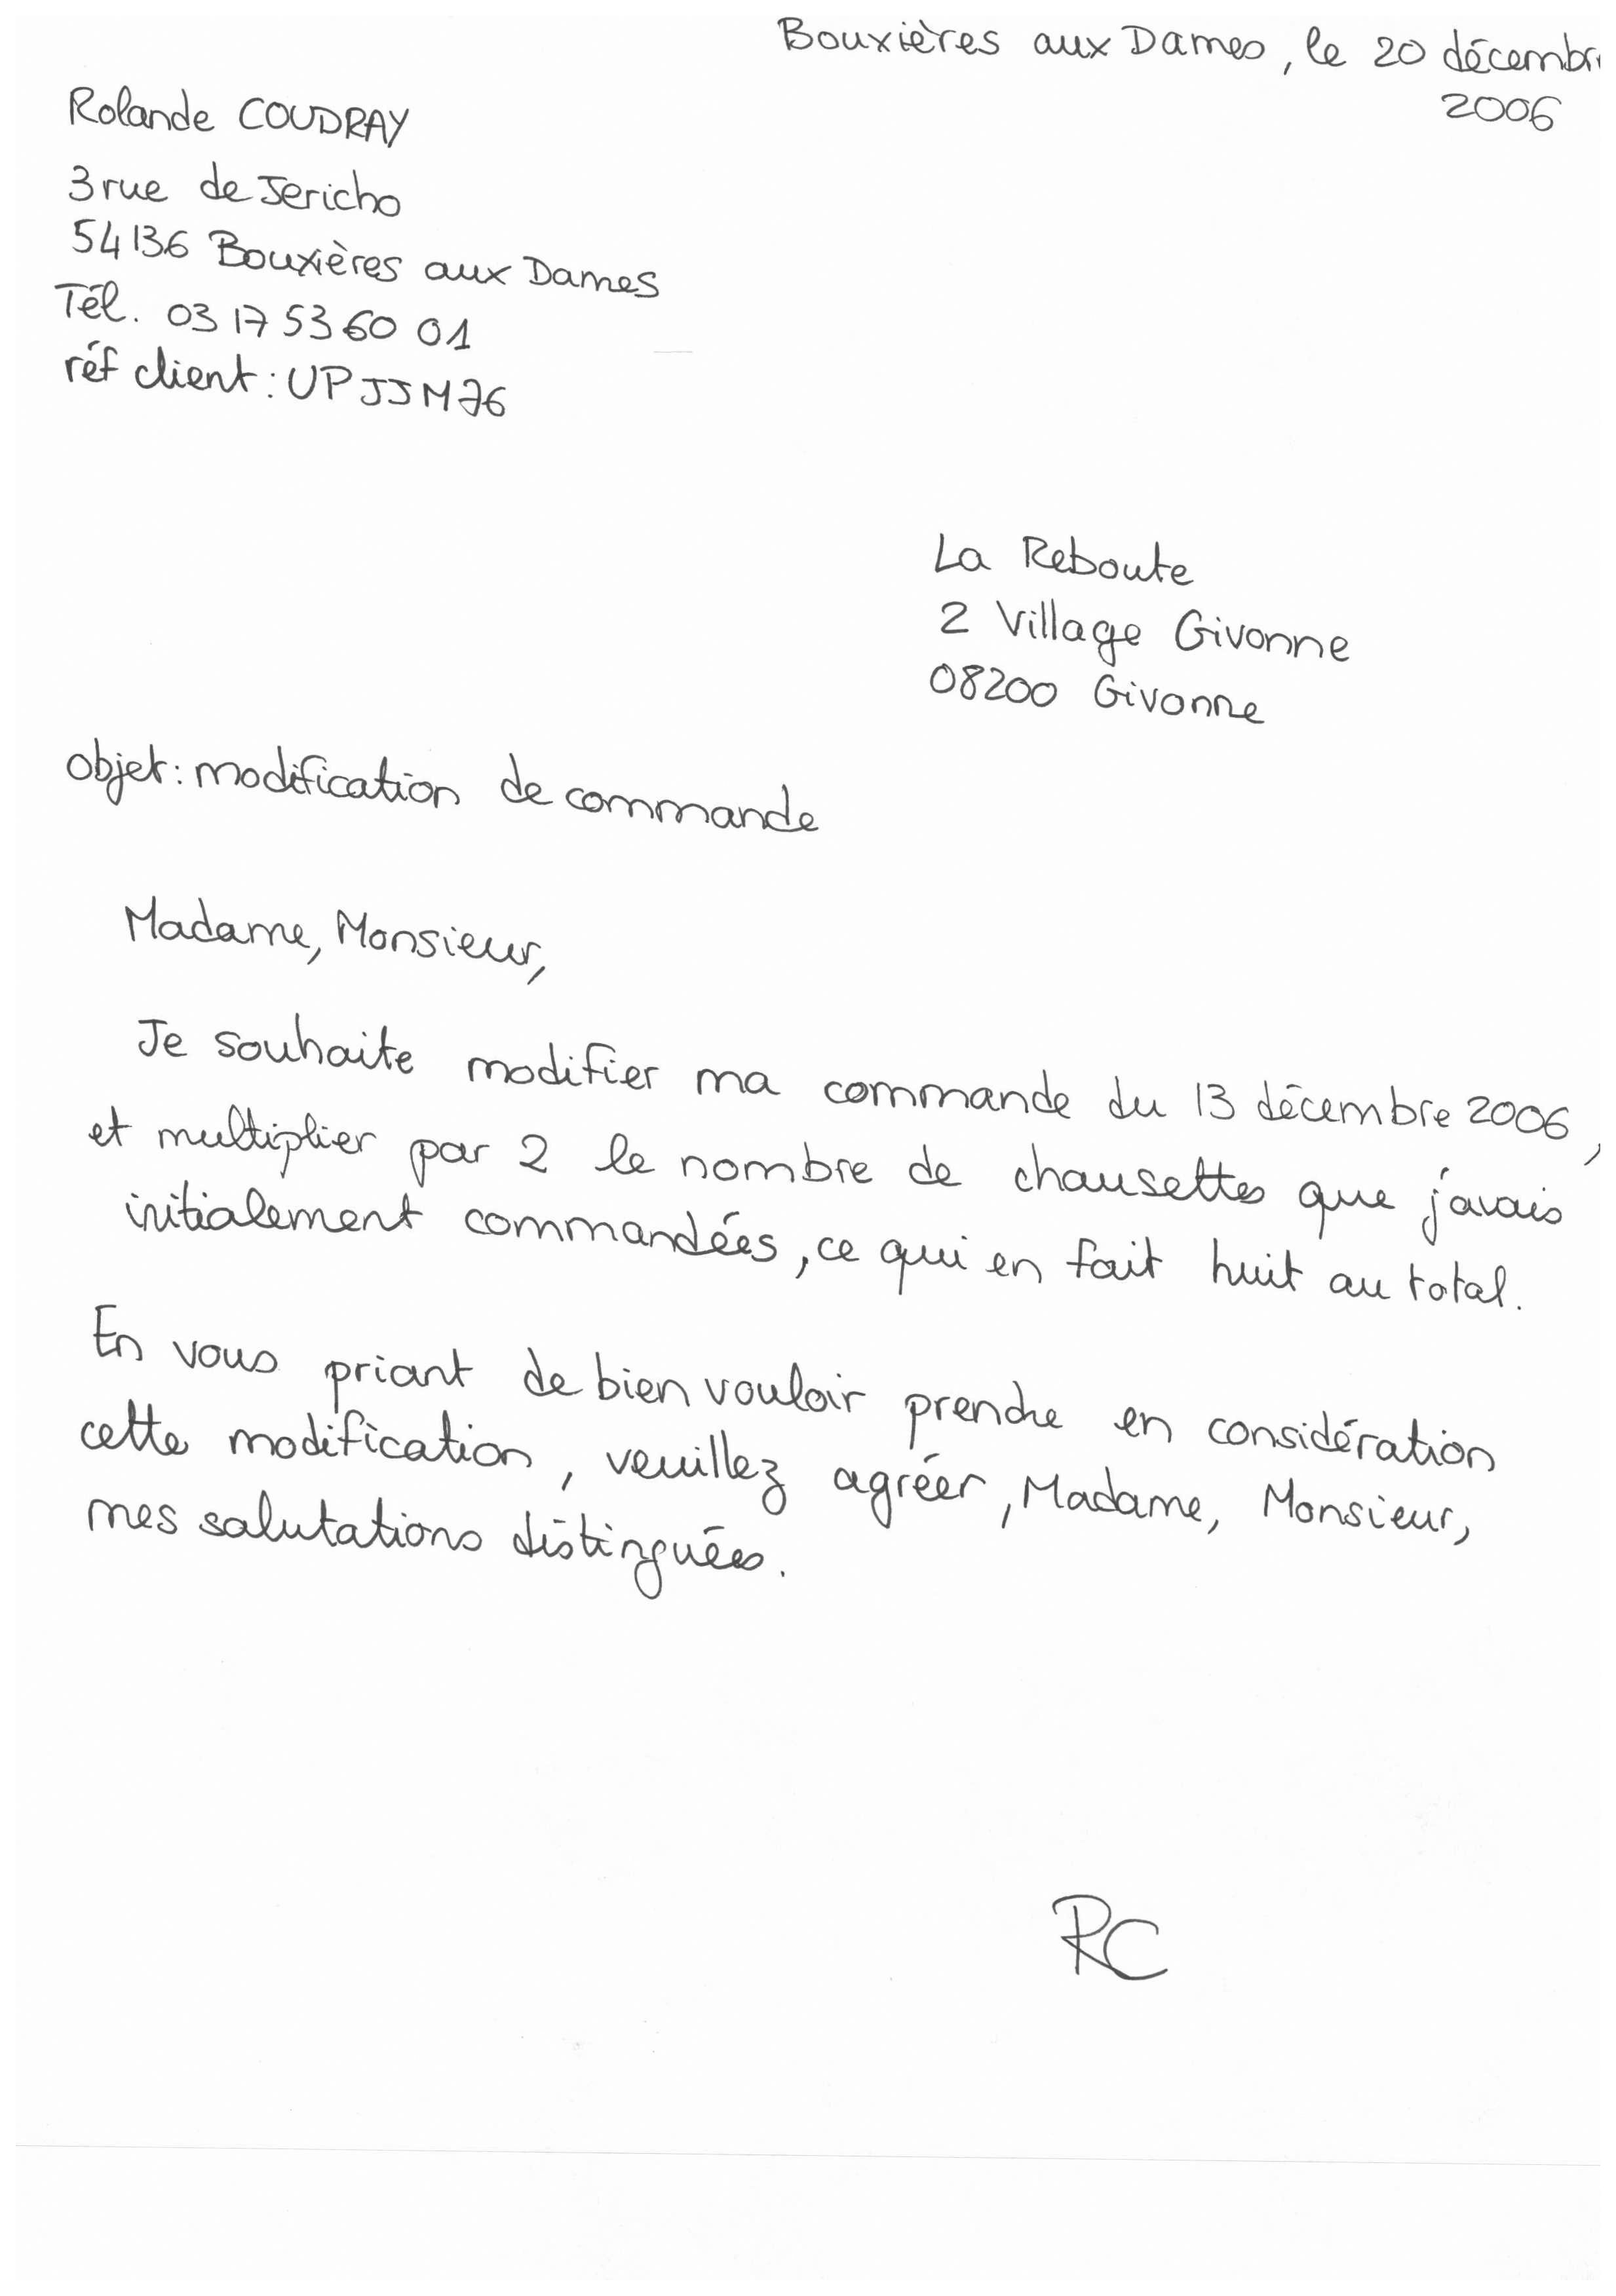 Bouxières aux Dames, le 20 décembr
2006
Rolande COUDRAY
3 rue de Jericho
54136 Bouxières aux Dames
Tél. 03 17 53 60 01
réf client : UPJJM76
La Reboute
2 Village Givonne
08200 Givonne
objet : modification de commande
Madame, Monsieur,
Je souhaite modifier ma commande du 13 décembre 2006,
et multiplier par 2 le nombre de chausettes que j'avais
initialement commandées, ce qui en fait huit au total.
En vous priant de bien vouloir prendre en considération
cette modification, veuillez agréer, Madame, Monsieur,
mes salutations distinguées.
RC